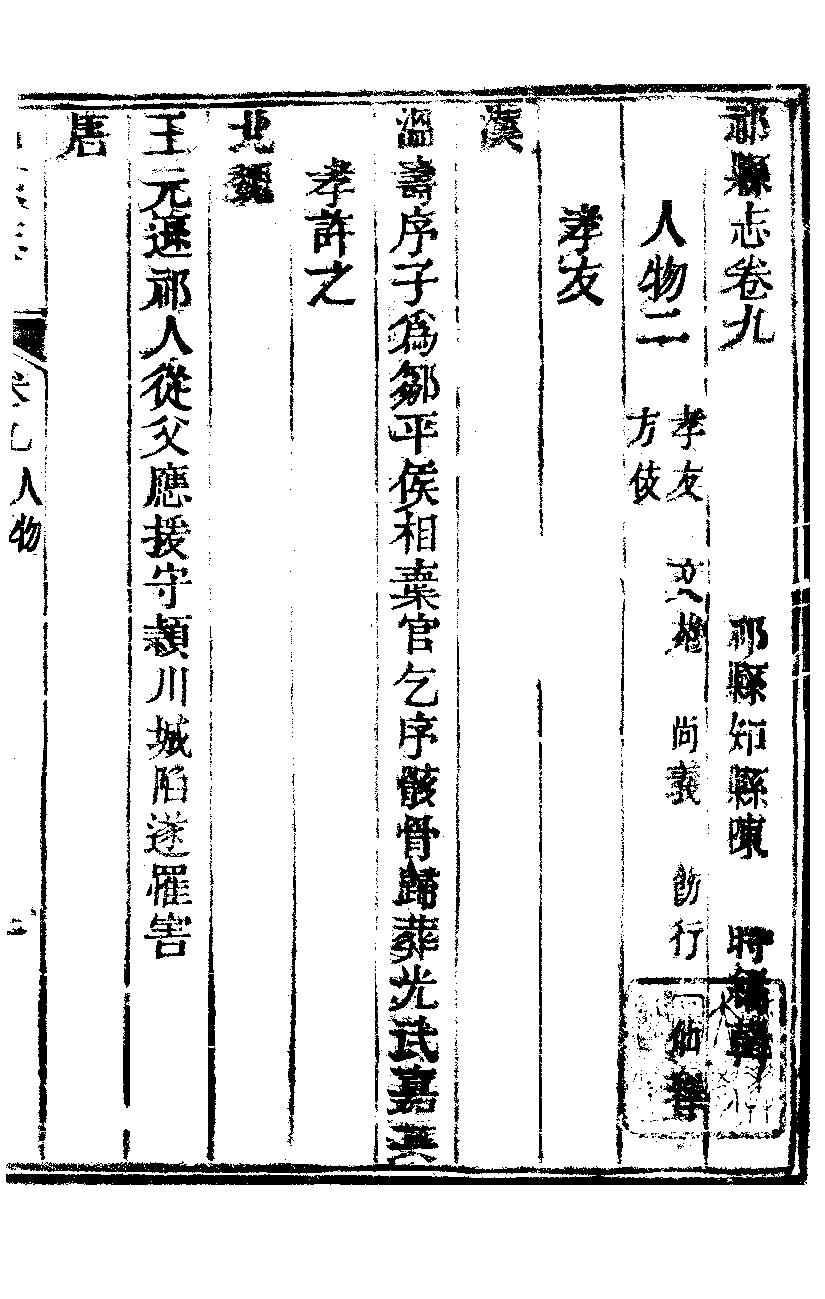 祁縣志卷九
祁縣知縣陳 時編輯
人物二
孝友 文苑 尚義 飭行 仙釋
方伎
孝友
漢
溫壽序子爲鄒平侯相棄官乞序骸骨歸葬光武嘉其
孝許之
北魏
王元遜祁人從父應援守潁川城陷遂罹害
唐
卷九人物